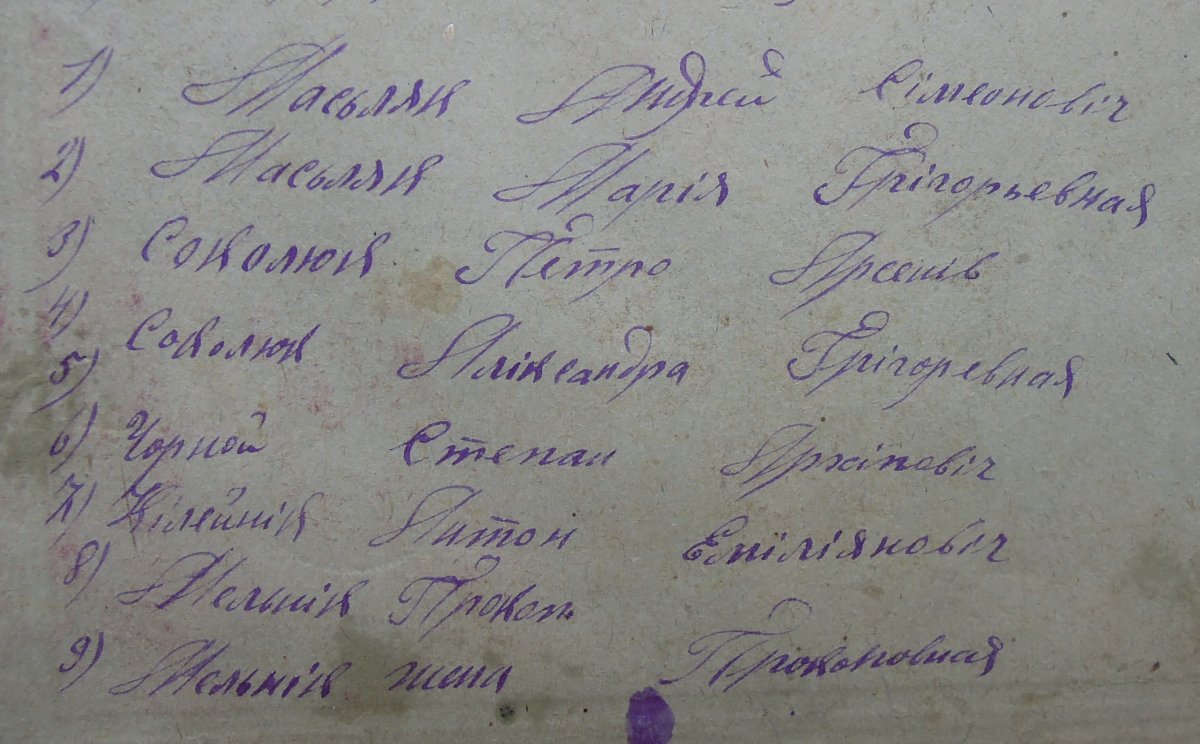 1) Масьляк Андрей Сімеоновіч
2) Масьляк Марія Грігорьевная
3) Соколюк Петро Арсенів
4) Соколюк Аліксандра Грігоревная
5)
6) Чорной Степан Архіповіч
7) Кілейнік Антон Емілія​новіч
8) Мельнік Прокоп
9) Мельнік жена Прокоповная